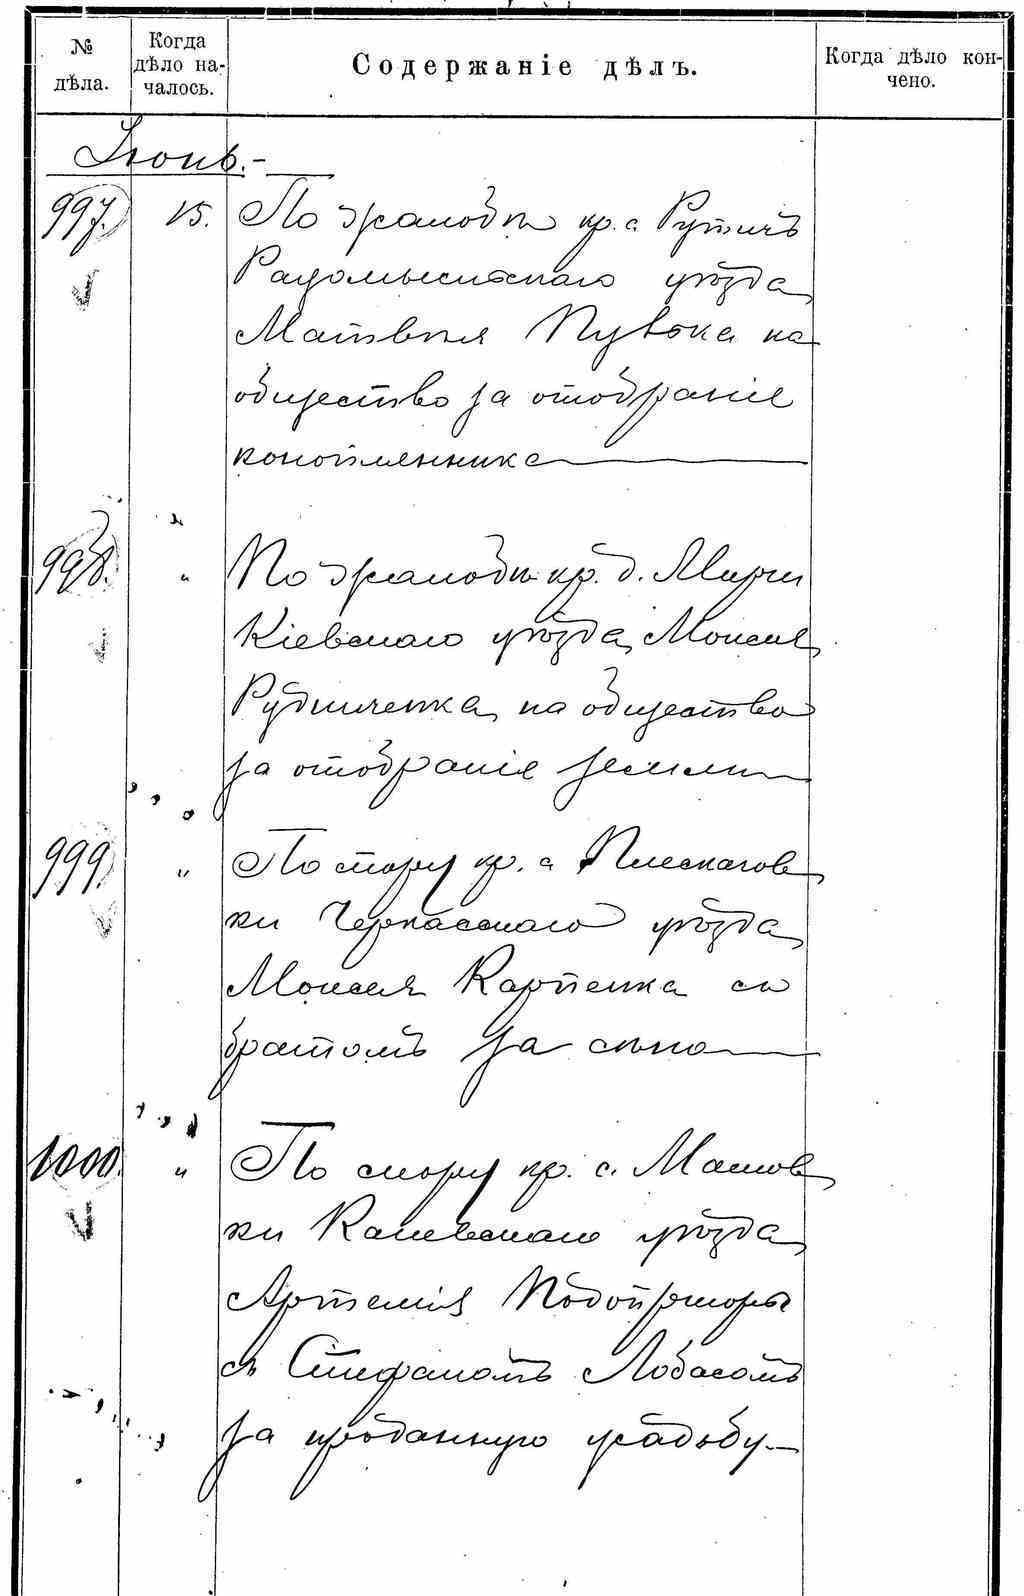 № дѣла.
Когда дѣло на-
чалось.
Содержаніе дѣлъ.
Когда дѣло кон-
чено.
Іюнь.-
997. 15. По жалобѣ кр. с. Рутичъ
Радомысльскаго уѣзда
Матвѣя Пувока на
общество за отобраніе
коноплянника
998. " По жалобѣ кр. д. Мирчи
Кіевскаго уѣзда Моисея
Рудниченка на общество
за отобраніе земли
999. " По спору кр. с. Плескачов
ки Черкасскаго уѣзда
Моисея Карпенка съ
братомъ за сѣно
1000. " По спору кр. с. Машов
ки Каневскаго уѣзда
Артемія Подопригоры
съ Стефаномъ Лобасомъ
за проданную усадьбу.-